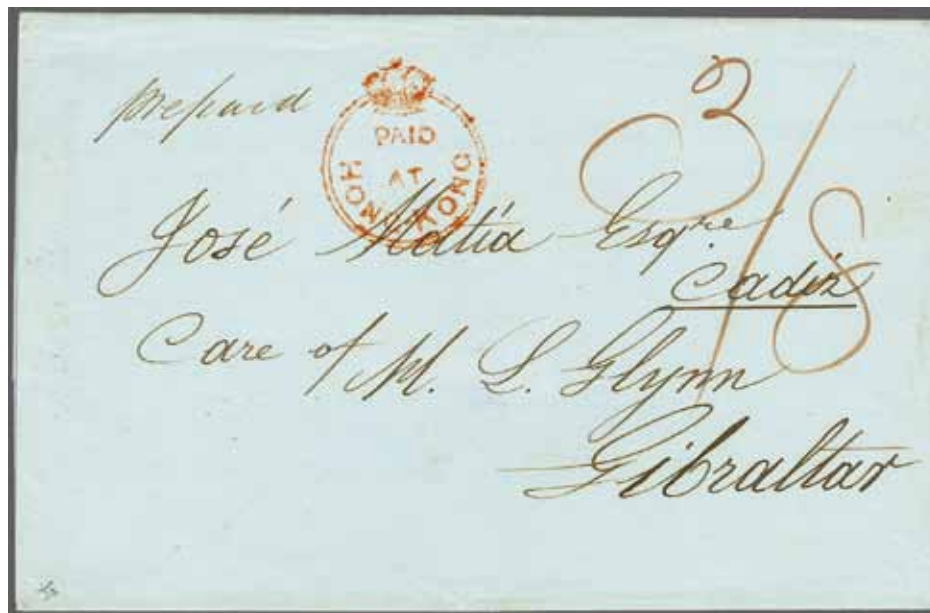 prepaid
PAID
AT
HONG KONG
3/8
José Matia Esqre
Cadiz
Care of M. L. Glynn
Gibraltar